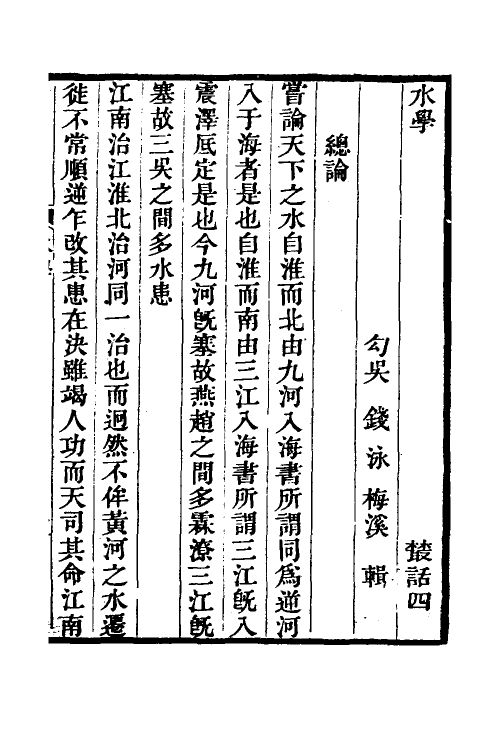 水學　　　叢話四
勾吳 錢泳 梅溪 輯
總論
嘗論天下之水自淮而北由九河入海書所謂同爲逆河
入于海者是也自淮而南由三江入海書所謂三江旣入
震澤厎定是也今九河旣塞故燕趙之間多霖潦三江旣
塞故三吳之間多水患
江南治江淮北治河同一治也而迥然不侔黃河之水遷
徙不常順逆乍改其患在決雖竭人功而天司其命江南